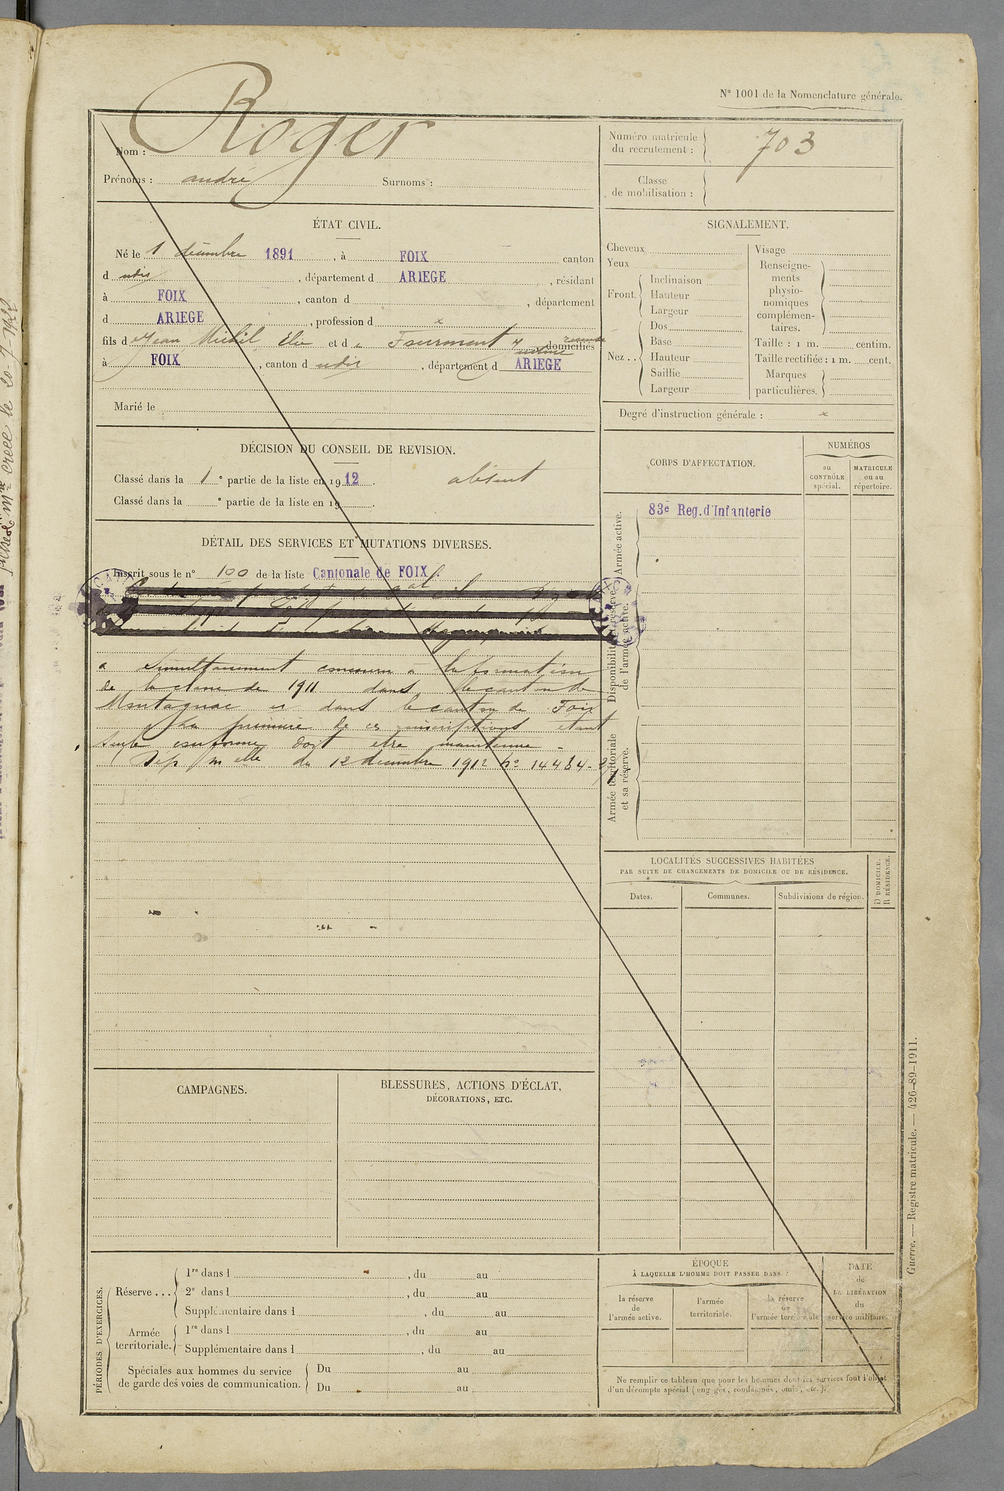 N° 1001 de la Nomenclature générale.
Nom : Roger
Prénoms : andré Surnoms :
Numéro matricule du recrutement : 703
Classe de mobilisation :
ÉTAT CIVIL.
Né le 1 décembre 1891, à FOIX canton
d udis, département d ARIEGE, résidant
à FOIX, canton d , département
d ARIEGE, profession d x
fils d e Jean Michel Elie et d e Fourment domiciliés
à FOIX, canton d udis, département d ARIEGE
Marié le
SIGNALEMENT.
Cheveux
Yeux
Front. Inclinaison
Hauteur
Largeur
Nez . . Dos
Base
Hauteur
Saillie
Largeur
Visage
Renseignements physionomiques complémentaires.
Taille : 1 m. centim.
Taille rectifiée : 1 m. cent.
Marques particulières.
Degré d'instruction générale : x
DÉCISION DU CONSEIL DE REVISION.
Classé dans la 1 e partie de la liste en 1912. absent
Classé dans la e partie de la liste en 19 .
DÉTAIL DES SERVICES ET MUTATIONS DIVERSES.
Inscrit sous le n° 100 de la liste Cantonale de FOIX
a simultanement concouru a la formation
de la classe de 1911 dans le canton de
Montagnac et dans le canton de Foix
La première de ces inscriptions étant
seule conforme doit etre maintenue -
Dep m elle du 12 décembre 1912 n° 14484-
CORPS D'AFFECTATION.
NUMÉROS
au CONTRÔLE spécial.
MATRICULE ou au répertoire.
Armée active.
83e Reg.d'Infanterie
Disponibilité et réserve de l'armée active.
Armée territoriale et sa réserve.
LOCALITÉS SUCCESSIVES HABITÉES
PAR SUITE DE CHANGEMENTS DE DOMICILE OU DE RÉSIDENCE.
Dates.
Communes.
Subdivisions de région.
D DOMICILE.
R RÉSIDENCE.
CAMPAGNES.
BLESSURES, ACTIONS D'ÉCLAT,
DÉCORATIONS, ETC.
PÉRIODES D'EXERCICES.
Réserve . . . 1re dans l , du au
2e dans l , du au
Supplémentaire dans l , du au
Armée territoriale. 1re dans l , du au
Supplémentaire dans l , du au
Spéciales aux hommes du service de garde des voies de communication.
Du au
Du au
ÉPOQUE
À LAQUELLE L'HOMME DOIT PASSER DANS :
la réserve de l'armée active.
l'armée territoriale.
la réserve de l'armée territoriale
DATE de LA LIBÉRATION du service militaire.
Ne remplir ce tableau que pour les hommes dont les services font l'objet
d'un décompte spécial (engagés, condamnés, omis, etc.).
Guerre. — Registre matricule. — 426-89-1911.